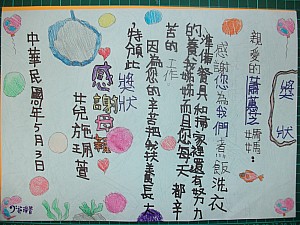 獎狀
親愛的 媽媽:
感謝您為我們煮飯洗衣
準備餐具和掃家裡還有努力
的養我姊姊而且您每天都辛
苦的工作。
因為您的辛苦把我扶養長大
特頒此獎狀
感謝母親
兒施珮萱
中華民國 年5月3日